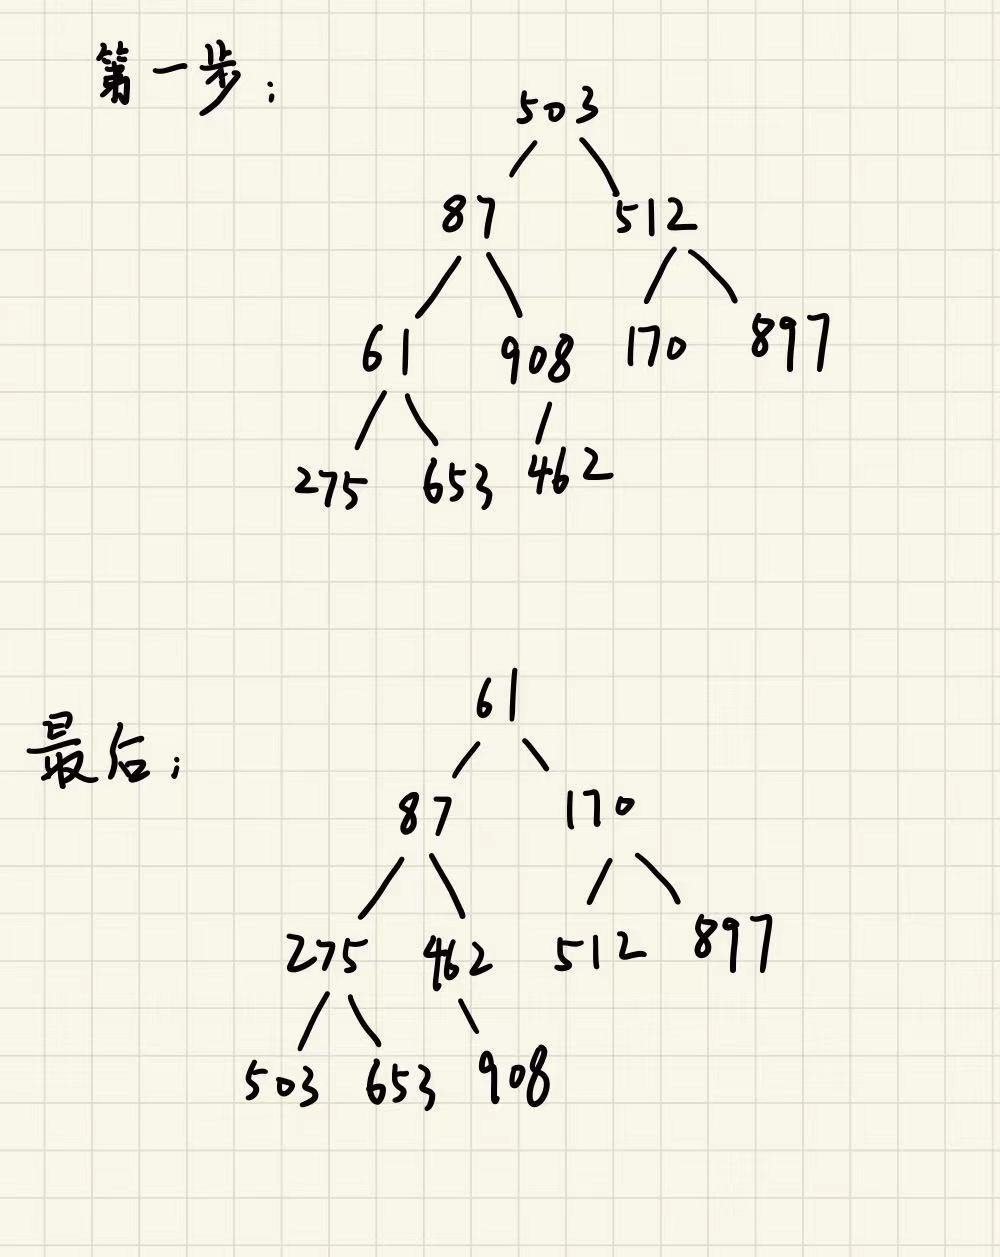 第一步;
503
87 512
61 908 170 897
275 653 462
最后;
61
87 170
275 462 512 897
503 653 908